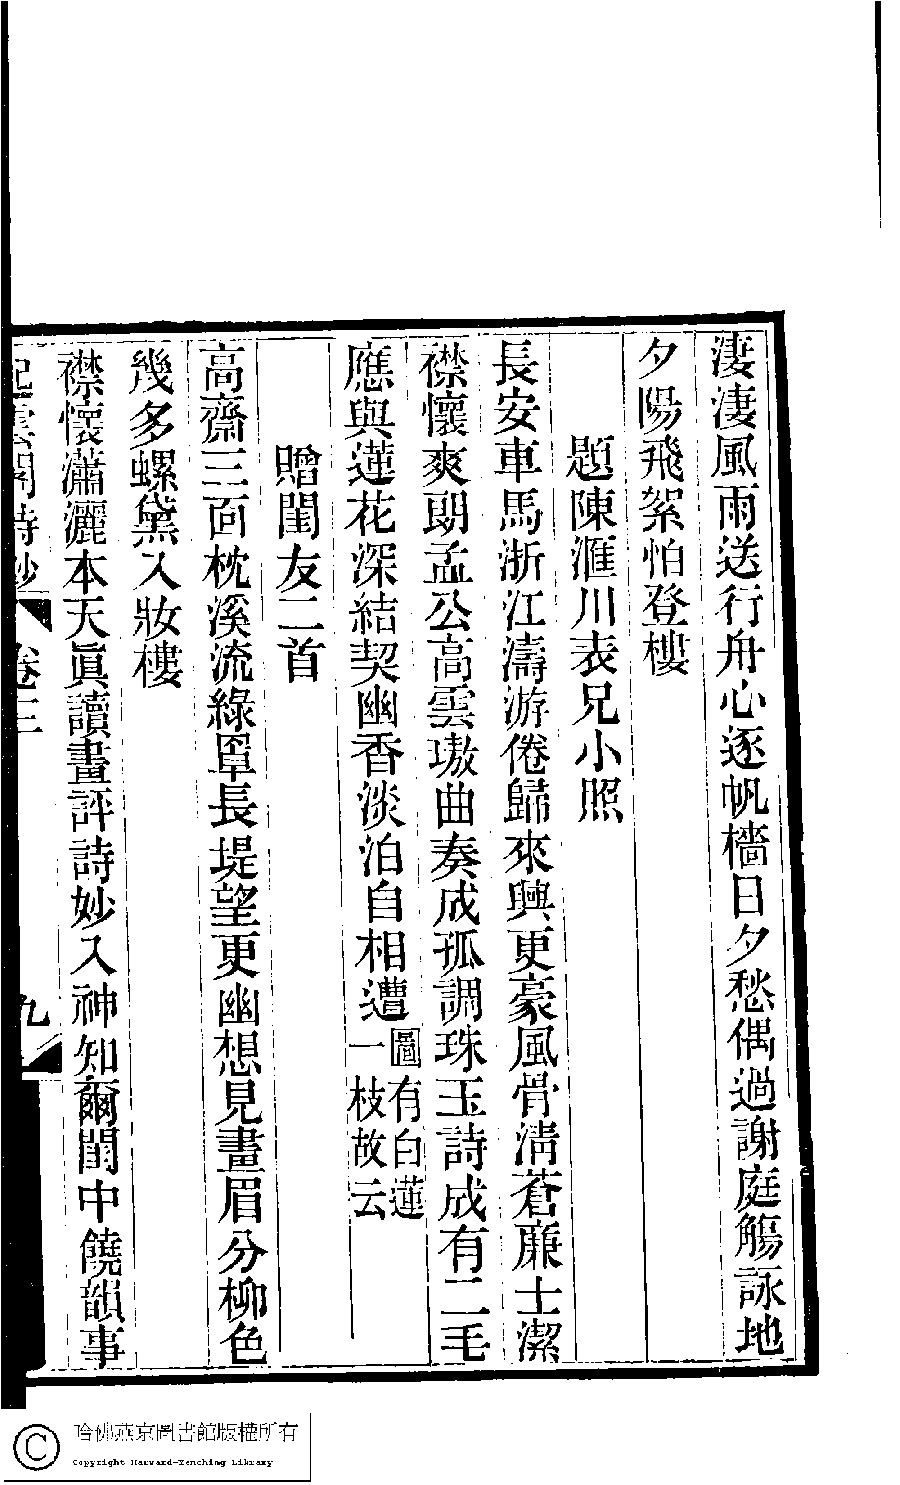 淒淒風雨送行舟心逐帆檣日夕愁偶過謝庭觴詠地
夕陽飛絮怕登樓
題陳滙川表兄小照
長安車馬浙江濤游倦歸來興更豪風骨淸蒼廉士潔
襟懷爽朗孟公高雲璈曲奏成孤調珠玉詩成有二毛
應與蓮花深結契幽香淡泊自相遭圖有白蓮一枝故云
贈閨友二首
高齋三面枕溪流綠罩長堤望更幽想見畫眉分柳色
幾多螺黛入妝樓
襟懷瀟灑本天眞讀畫評詩妙入神知爾閨中饒韻事
起雲閣詩鈔 卷三 九
哈佛燕京圖書館版權所有
Copyright Harvard-Yenching Library